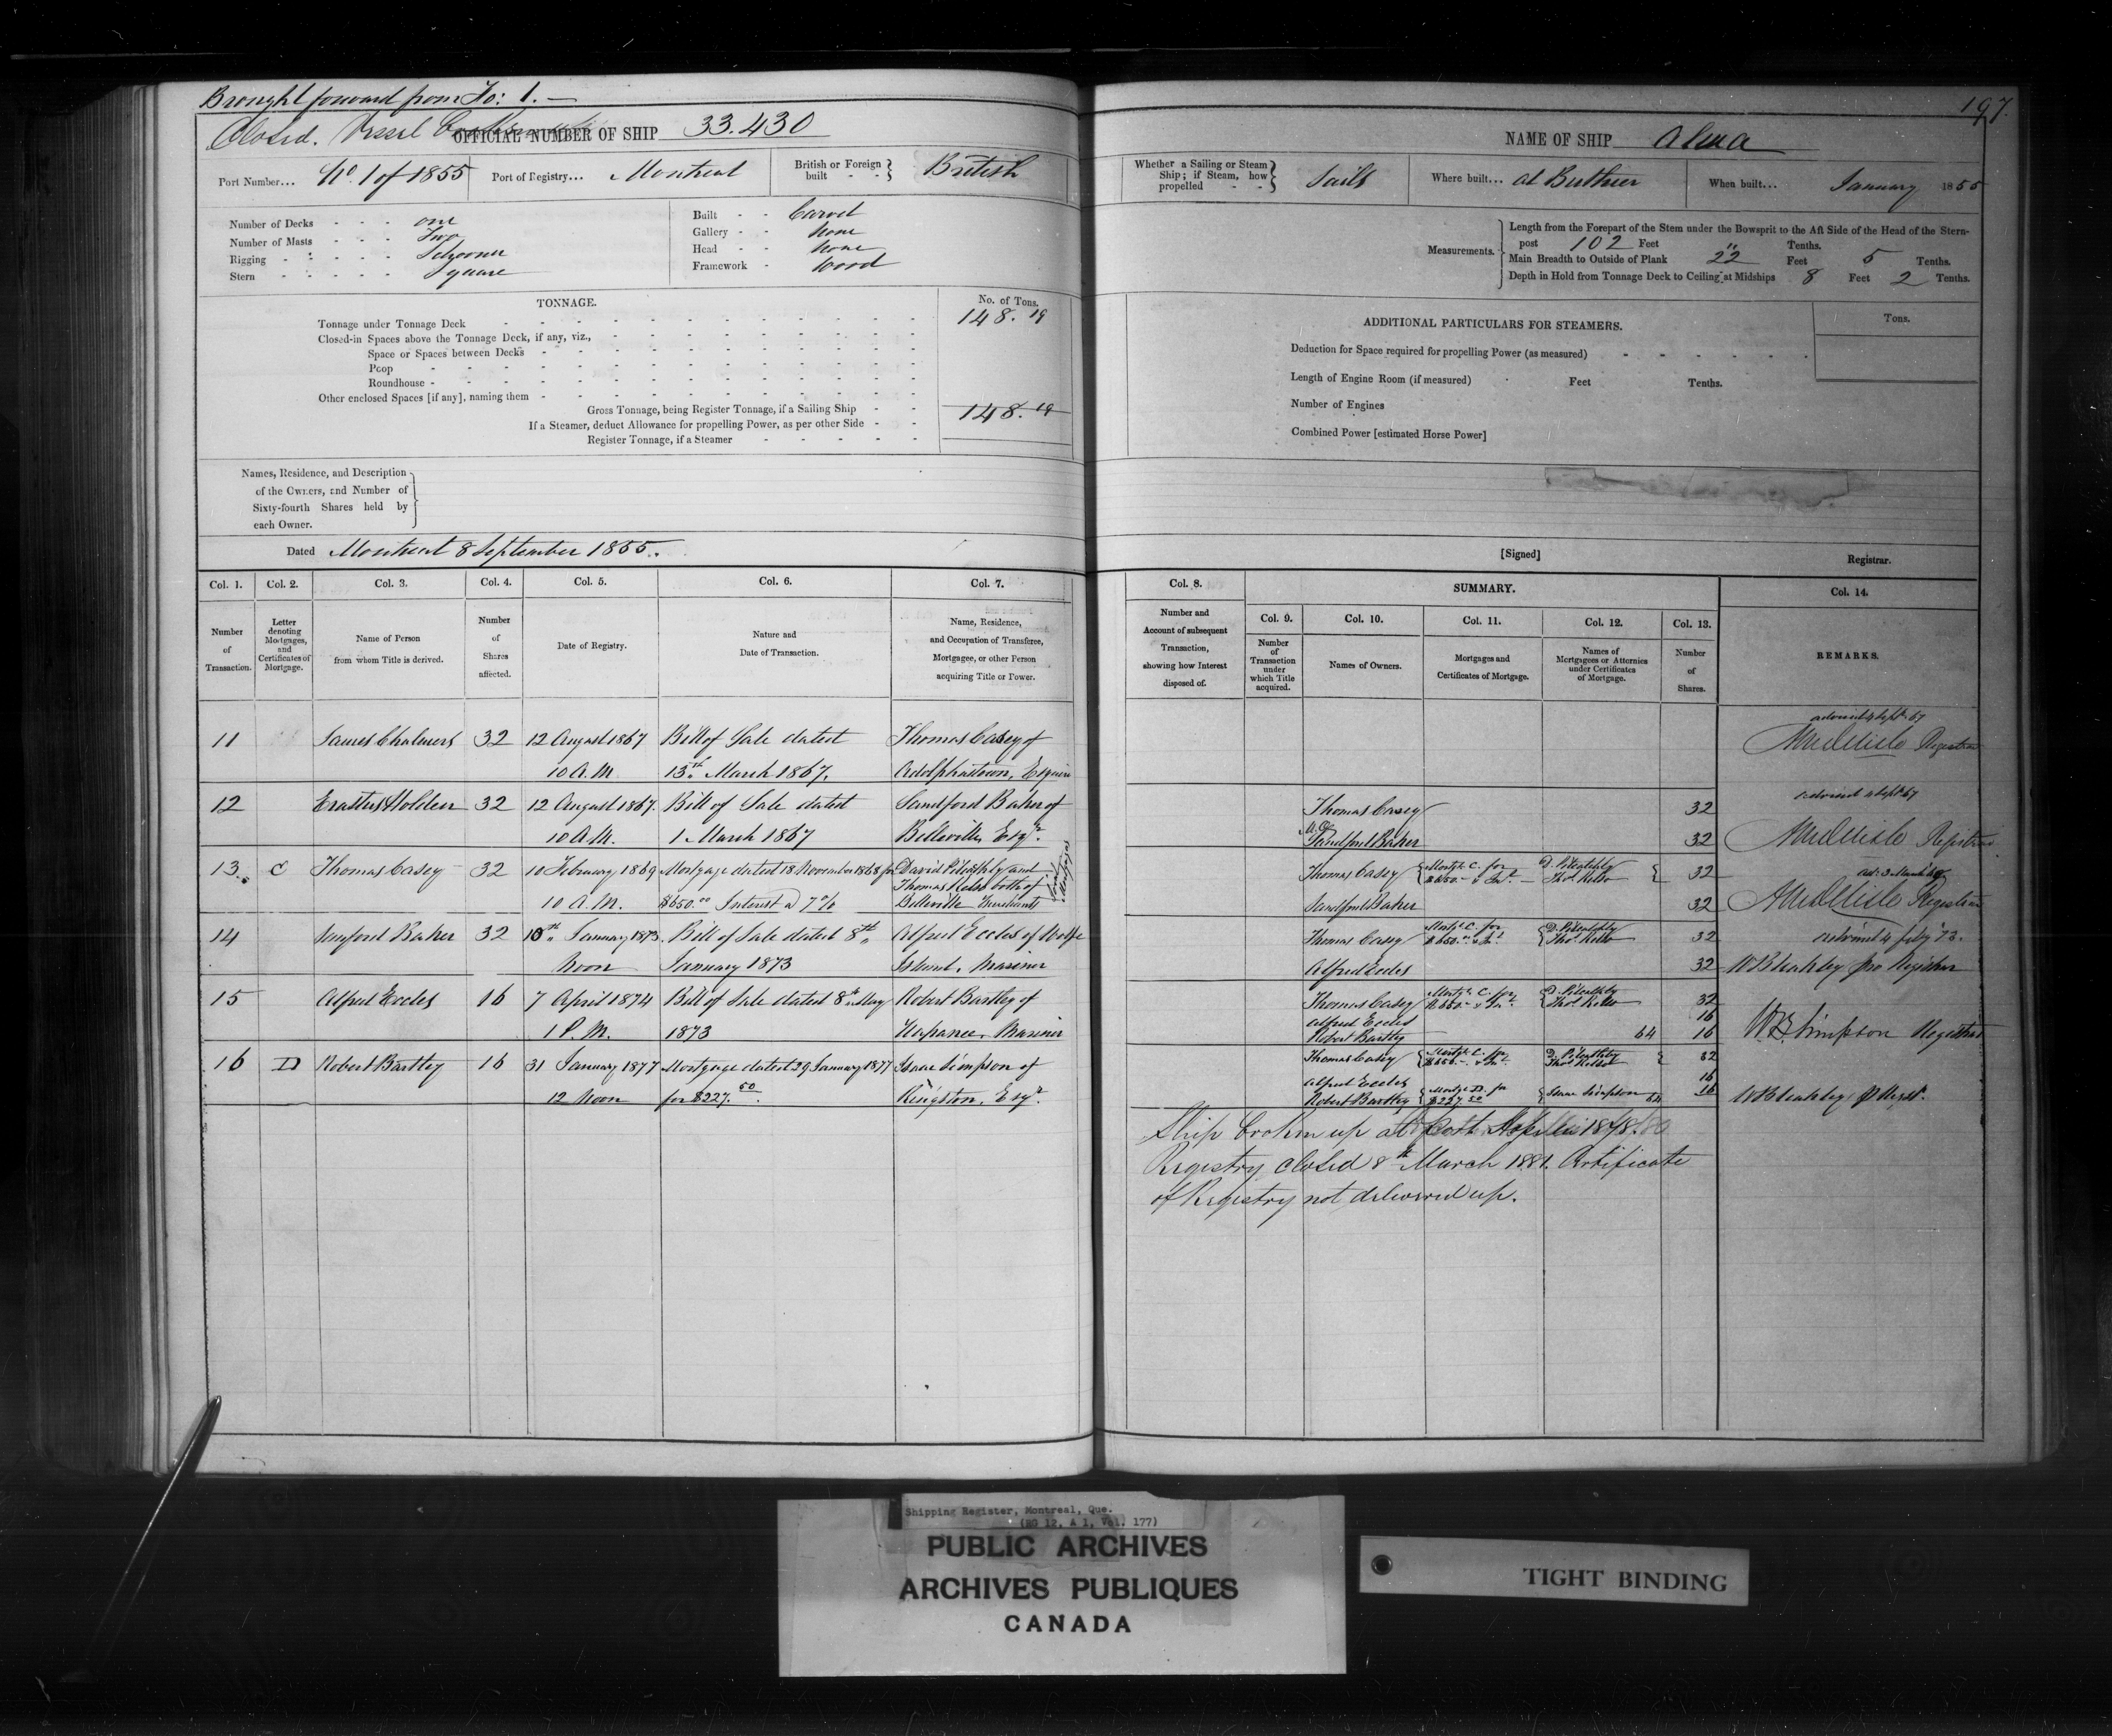 Brought forward from Fo: 1. —
197.
Closed. Vessel
OFFICIAL NUMBER OF SHIP 33.430
NAME OF SHIP Alma
Port Number... No. 1 of 1855 Port of Registry... Montreal British or Foreign built - - British
Whether a Sailing or Steam Ship; if Steam, how propelled - - Sails Where built... at Berthier When built... January 1855
Number of Decks - - - one
Number of Masts - - - Two
Rigging - - - - - Schooner
Stern - - - - - Square
Built - - Carvel
Gallery - - None
Head - - None
Framework - Wood
Measurements.
Length from the Forepart of the Stem under the Bowsprit to the Aft Side of the Head of the Stern-
post 102 Feet " Tenths.
Main Breadth to Outside of Plank 22 Feet 5 Tenths.
Depth in Hold from Tonnage Deck to Ceiling at Midships 8 Feet 2 Tenths.
TONNAGE.
No. of Tons.
Tonnage under Tonnage Deck 148.19
Closed-in Spaces above the Tonnage Deck, if any, viz.,
Space or Spaces between Decks
Poop
Roundhouse
Other enclosed Spaces [if any], naming them
Gross Tonnage, being Register Tonnage, if a Sailing Ship 148.19
If a Steamer, deduct Allowance for propelling Power, as per other Side
Register Tonnage, if a Steamer
ADDITIONAL PARTICULARS FOR STEAMERS.
Tons.
Deduction for Space required for propelling Power (as measured)
Length of Engine Room (if measured) Feet Tenths.
Number of Engines
Combined Power [estimated Horse Power]
Names, Residence, and Description
of the Owners, and Number of
Sixty-fourth Shares held by
each Owner.
Dated Montreal 8 September 1855.
[Signed] Registrar.
Col. 1. Col. 2. Col. 3. Col. 4. Col. 5. Col. 6. Col. 7.
Number of Transaction.
Letter denoting Mortgages, and Certificates of Mortgage.
Name of Person from whom Title is derived.
Number of Shares affected.
Date of Registry.
Nature and Date of Transaction.
Name, Residence, and Occupation of Transferee, Mortgagee, or other Person acquiring Title or Power.
Col. 8. SUMMARY. Col. 14.
Number and Account of subsequent Transaction, showing how Interest disposed of.
Col. 9. Col. 10. Col. 11. Col. 12. Col. 13.
Number of Transaction under which Title acquired.
Names of Owners.
Mortgages and Certificates of Mortgage.
Names of Mortgagees or Attornies under Certificates of Mortgage.
Number of Shares.
REMARKS.
11 James Chalmers 32 12 August 1867 Bill of Sale dated Thomas Casey of
10 A.M. 13th March 1867. Adolphustown, Esquire
12 Erastus Holden 32 12 August 1867. Bill of Sale dated Sandford Baker of
10 A.M. 1 March 1867 Belleville, Esqr.
13. C Thomas Casey 32 10 February 1869 Mortgage dated 18 November 1868 for David Pitcathly and
Thomas Kelso both of
10 A.M. $650.00 Interest @ 7 % Belleville Merchants
Joint Mortgagees
14 Sanford Baker 32 10th January 1873. Bill of Sale dated 8th Alfred Eccles of Wolfe
Noon January 1873 Island, Mariner
15 Alfred Eccles 16 7 April 1874 Bill of Sale dated 8th May Robert Bartley of
1 P.M. 1873 Napanee, Mariner
16 D Robert Bartley 16 31 January 1877 Mortgage dated 29 January 1877 Isaac Simpson of
12 Noon for $227.50. Kingston, Esqr.
advised 4 Septr 67
Registrar
advised 4 Sept 67
Thomas Casey 32
Sandford Baker 32
Registrar
Thomas Casey Mortge C. for $650.- & Int. D. Pitcathly Thos Kelso 32
ad: 3 March 69
Sandford Baker 32
Registrar
Thomas Casey Mortge C. for $650.- & Int. D. Pitcathly Thos. Kelso 32
advised 4 July 73.
Alfred Eccles 32
WBleakley pro Registrar
Thomas Casey Mortge C. for $650.- & Int. D. Pitcathly Thos Kelso 32
Alfred Eccles 16
Robert Bartley 64 16
W.B. Simpson Registrar
Thomas Casey Mortge C. for $650.- & Int. D. Pitcathly Thos Kelso 32
Alfred Eccles 16
Robert Bartley Mortge D. for $227.50 Isaac Simpson 64 16
WBleakley
Ship broken up at Port Hope in 1878.
Registry closed 8th March 1881. Certificate
of Registry not delivered up.
Shipping Register, Montreal, Que.
(RG 12, A 1, Vol. 177)
PUBLIC ARCHIVES
ARCHIVES PUBLIQUES
CANADA
TIGHT BINDING